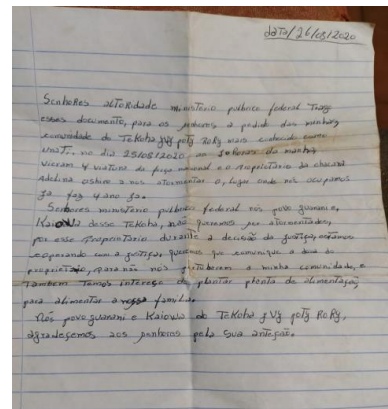 data/26/05/2020
Senhores altoRidade ministerio publico federal Trago
esses documento, para os senhores a pedido das minhas
comunidade do TeKoha yvy poty RoRy mais conhecido como
no dia 25/05/2020 as horas da manhã
vieram 4 viatura da força nacional e o proprietario da chacara
Adelina a nos atormentar o lugar onde nós ocupamos
já faz 4 ano já.
Senhores ministerio publico federal nós povo guarani e,
Kaiowa desse TeKoha, não queremos ser atormentados,
por esse proprietario durante a decisão da justiça, estamos
esperando com a justiça, queremos que comunique a dona do
proprietario, para não nós a minha comunidade, e
Tambem Temos interese de plantar planta de alimentação
para alimentar a nossa familia.
Nós povo guarani e Kaiowa do TeKoha yvy poty RoRy,
agradeçemos aos senhores pela sua antenção.